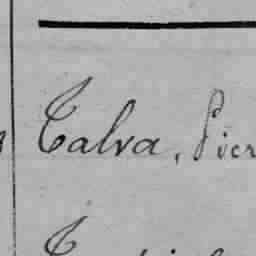 Talva, Pier